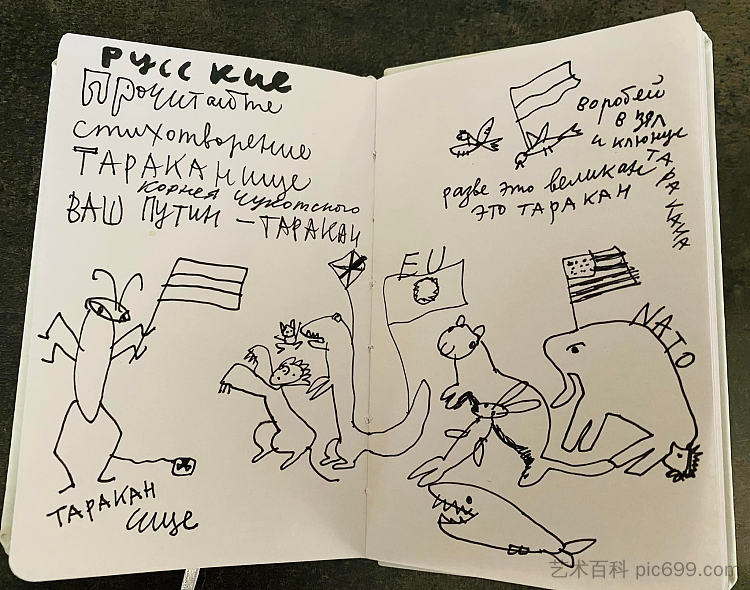 РУССКИЕ
Прочитайте
стихотворение
ТАРАКАНище
Корнея Чуковского
ВАШ ПУТИН – ТАРАКАН
ТАРАКАН
ище
воробей
в зял
и клюнул
ТАРАКАНА
разве это великан
это ТАРАКАН
EU
NATO
艺术百科 pic699.com